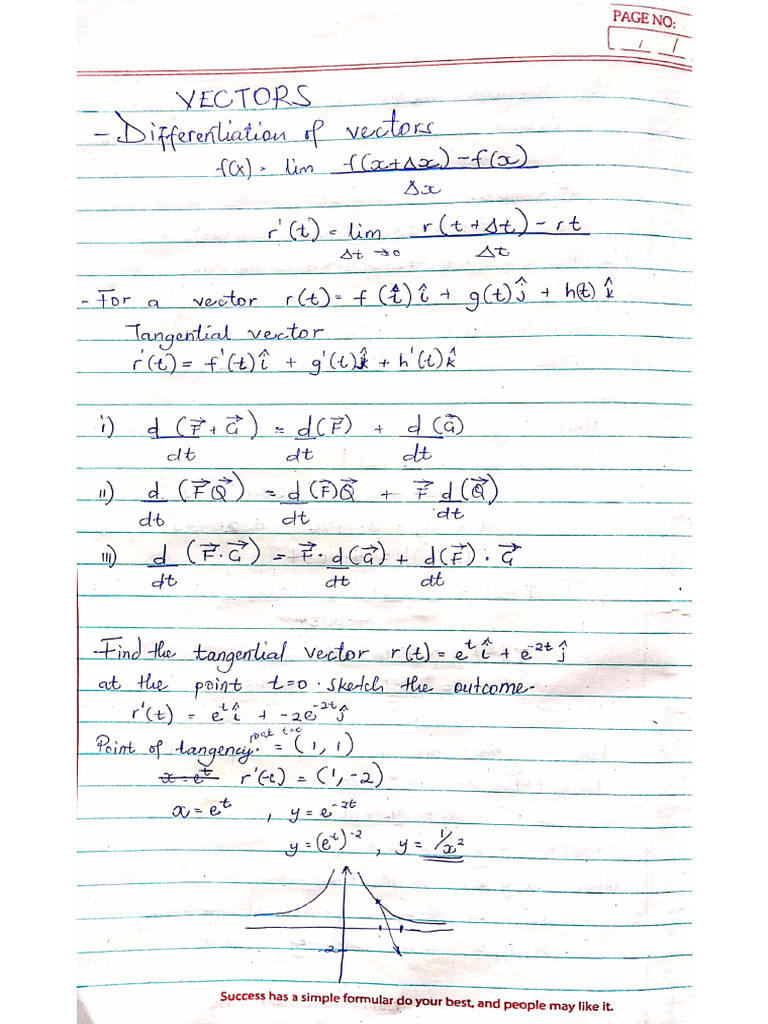 PAGE NO:
VECTORS
- Differentiation of vectors
f(x) = lim f(x+Δx) - f(x)
Δx
r'(t) = lim r(t+Δt) - rt
Δt →0 Δt
- For a vector r(t) = f(t)î + g(t)ĵ + h(t)k̂
Tangential vector
r'(t) = f'(t)î + g'(t)ĵ + h'(t)k̂
i) d (F⃗ + G⃗) = d(F⃗) + d(G⃗)
dt dt dt
ii) d (F⃗Q⃗) = d(F⃗)Q⃗ + F⃗ d(Q⃗)
dt dt dt
iii) d (F⃗·G⃗) = F⃗·d(G⃗) + d(F⃗)·G⃗
dt dt dt
- Find the tangential vector r(t) = e^t î + e^-2t ĵ
at the point t=0 . sketch the outcome.
r'(t) = e^t î + -2e^-2t ĵ
Point of tangency. = (1, 1)
x = e^t r'(t) = (1, -2)
x = e^t , y = e^-2t
y = (e^t)^-2 , y = 1/x^2
-2
Success has a simple formular do your best, and people may like it.